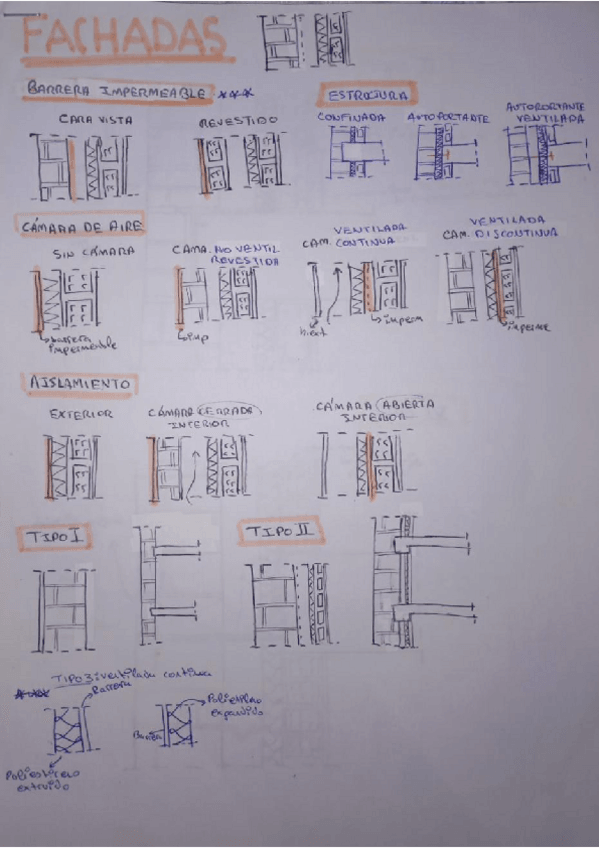 FACHADAS
BARRERA IMPERMEABLE ***
CARA VISTA
REVESTIDO
ESTRUCTURA
CONFINADA
AUTOPORTANTE
AUTOPORTANTE
VENTILADA
CÁMARA DE AIRE
SIN CÁMARA
barrera
impermeable
CAMA. NO VENTIL
REVESTIDA
imp
VENTILADA
CAM. CONTINUA
imperm
VENTILADA
CAM. DISCONTINUA
AISLAMIENTO
EXTERIOR
CÁMARA CERRADA
INTERIOR
CÁMARA ABIERTA
INTERIOR
TIPO I
TIPO II
TIPO 3: ventilada continua
Barrera
Poliestireno
extruido
Poliestireno
expandido